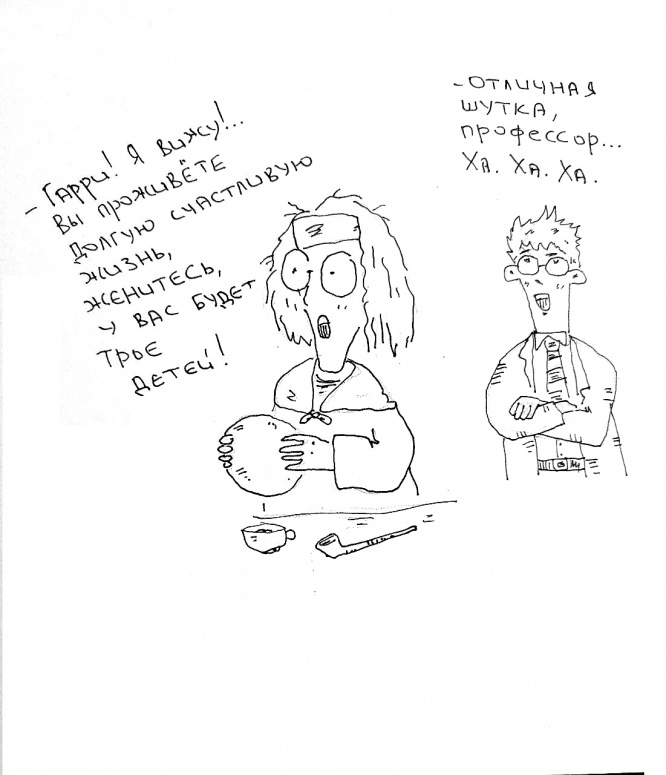 - Гарри! Я вижу!...
Вы проживёте
долгую счастливую
жизнь,
женитесь,
у вас будет
трое
детей!
- Отличная
шутка,
профессор...
Ха. Ха. Ха.